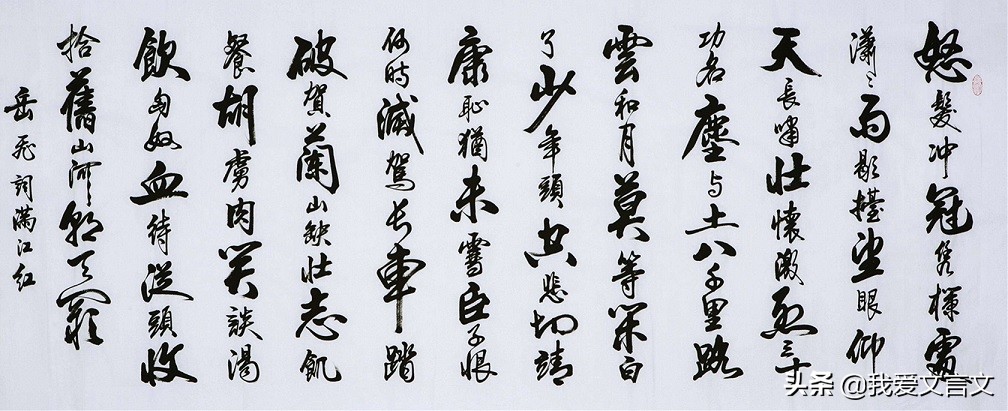 怒髮冲冠凭欄處
瀟〻雨歇擡望眼仰
天長嘯壯懷激烈三十
功名塵与土八千里路
雲和月莫等閑白
了少年頭空悲切靖
康恥猶未雪臣子恨
何時滅駕長車踏
破賀蘭山缺壯志飢
餐胡虜肉笑談渴
飲匈奴血待從頭收
拾舊山河朝天闕
岳飛詞滿江紅
头条 @我爱文言文